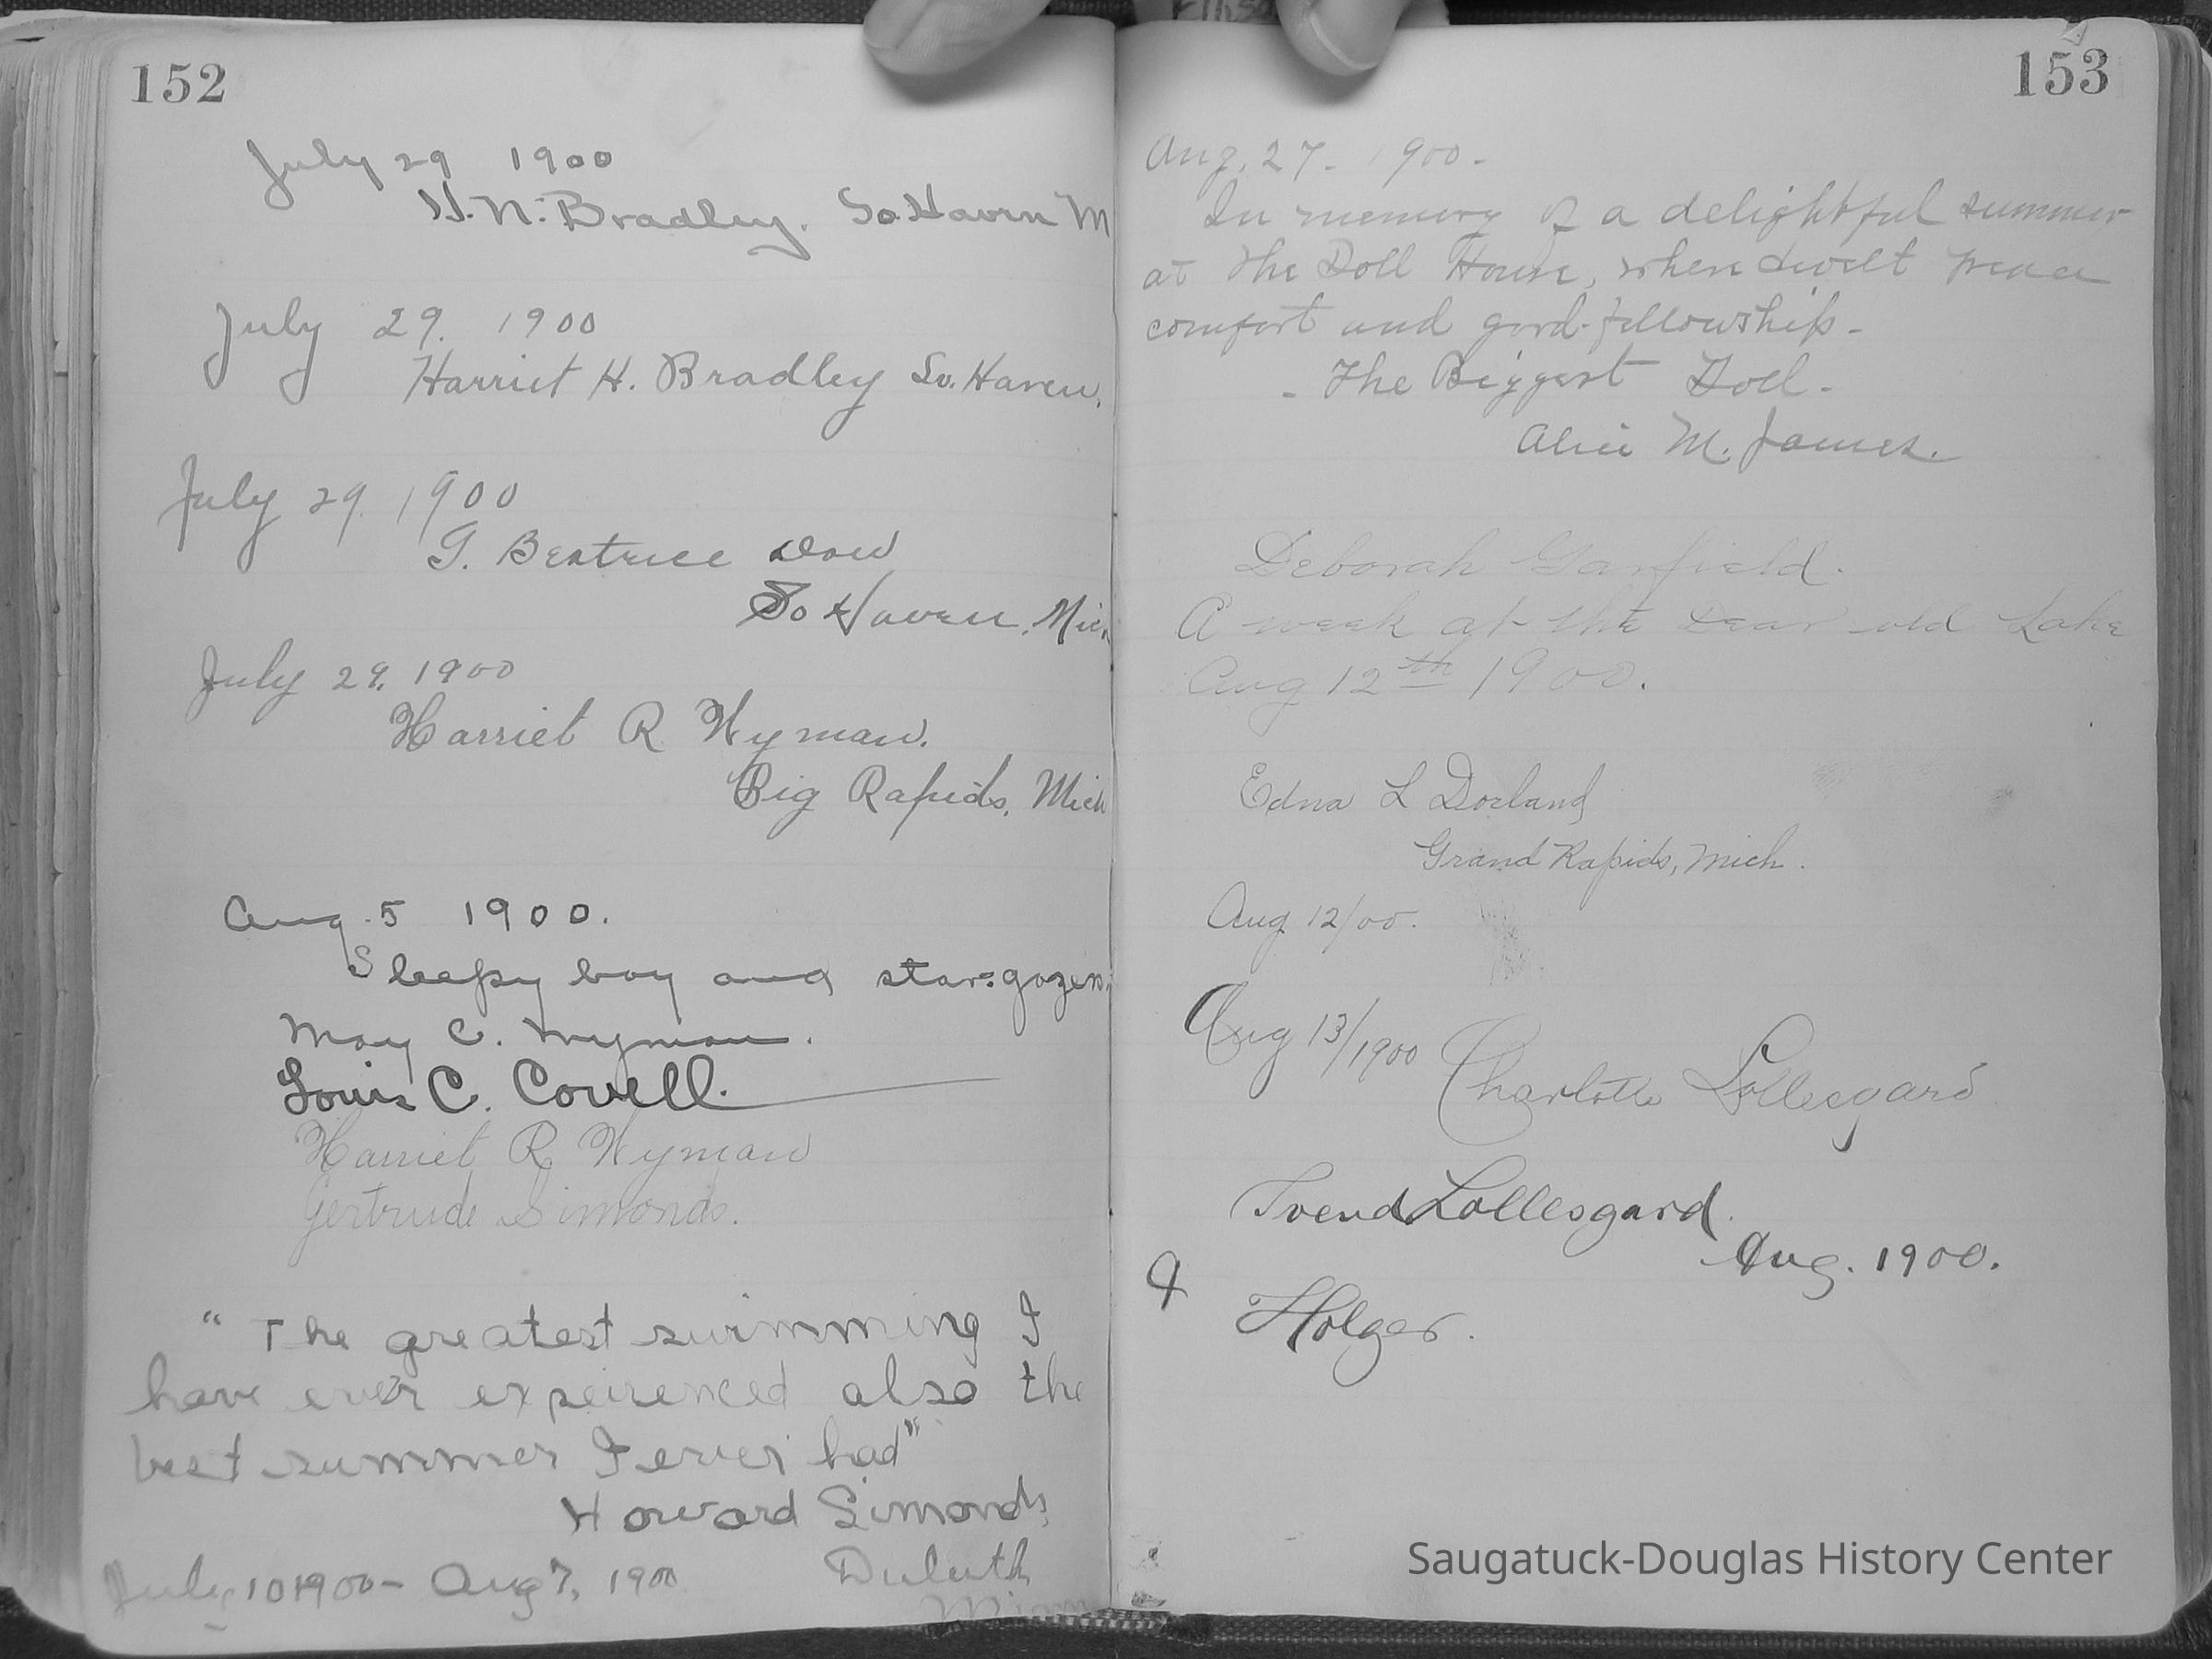 152
July 29 1900
H. N. Bradley. So. Haven M
July 29. 1900
Harriet H. Bradley So. Haven.
July 29. 1900
G. Beatrice Dow
So Haven, Mich
July 29. 1900
Harriet R Wyman.
Big Rapids, Mich
Aug. 5 1900.
Sleepy boy and star-gazers.
May C. Wyman.
Louis C. Covell.
Harriet R Wyman
Gertrude Simonds.
"The greatest swimming I
have ever expeirenced also the
best summer I ever had"
Howard Simonds
July 10 1900 - Aug 7, 1900 Duluth
Minn
153
Aug. 27. 1900.
In memory of a delightful summer
at The Doll House, where dwelt peace
comfort and good-fellowship.
- The Biggest Doll.
Alice M. James.
Deborah Garfield.
A week at the Dear old Lake
Aug 12th 1900.
Edna L Dorland
Grand Rapids, Mich.
Aug 12/00.
Aug 13/1900 Charlotte Lollesgard
Svend Lollesgard.
Aug. 1900.
Holger.
Saugatuck-Douglas History Center